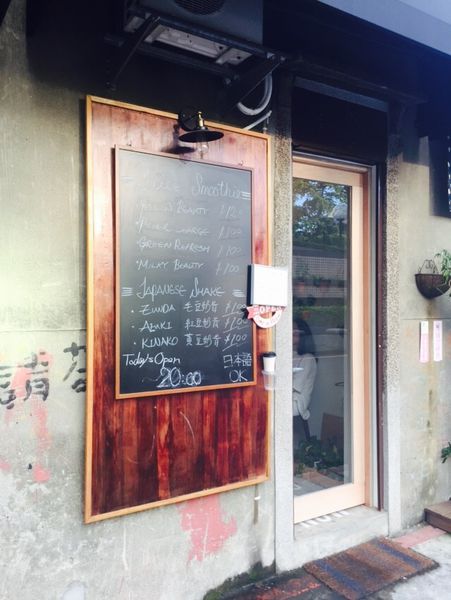 Smoothie
BEAUTY $120
CHARGE $100
GREEN REFRESH $100
MILKY BEAUTY $100
JAPANESE SHAKE
ZUNDA 毛豆奶昔 $100
AZUKI 紅豆奶昔 $100
KINAKO 黃豆奶昔 $100
Today's Open 日本語
20:00 OK
OPEN
請